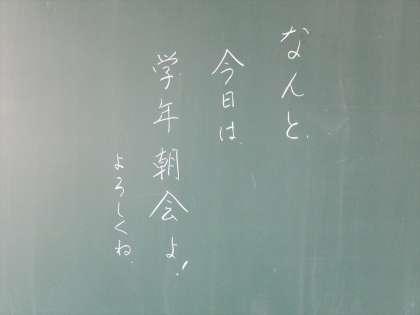 なんと、
今日は、
学年朝会よ!
よろしくね。